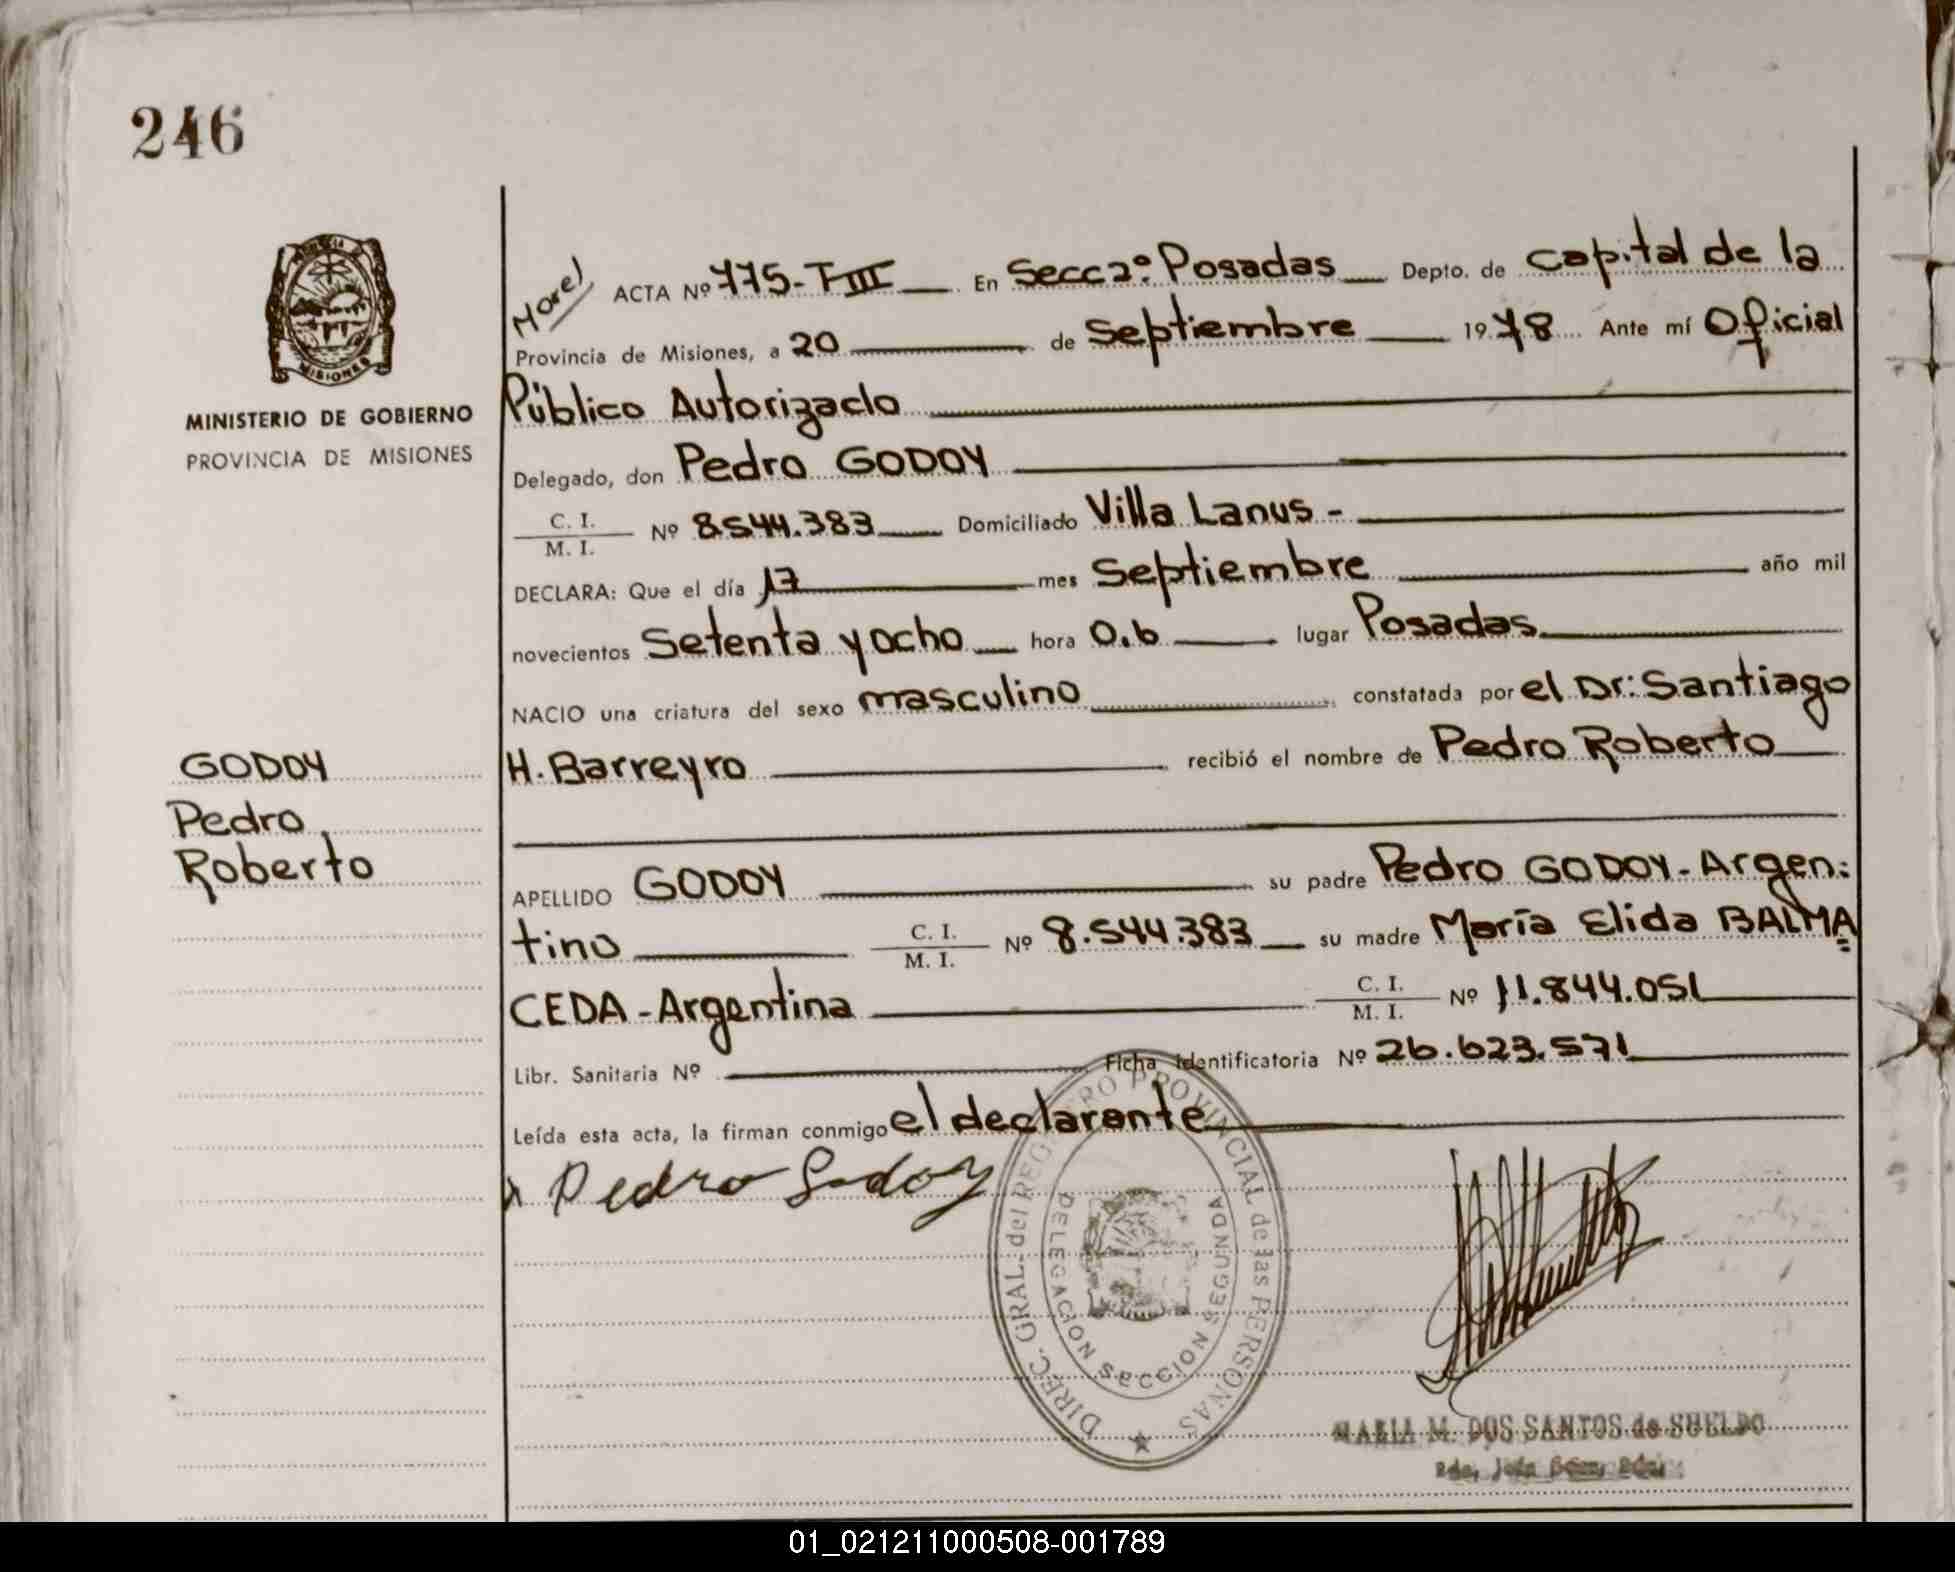 246
MINISTERIO DE GOBIERNO
PROVINCIA DE MISIONES
MISIONES
Morel
ACTA Nº 775-TIII En Secc 2º Posadas Depto. de Capital de la
Provincia de Misiones, a 20 de Septiembre 1978 Ante mí Oficial
Público Autorizado
Delegado, don Pedro GODOY
C. I.
M. I. Nº 8544.383 Domiciliado Villa Lanus -
DECLARA: Que el día 17 mes Septiembre año mil
novecientos Setenta y ocho hora 0.6 lugar Posadas
NACIO una criatura del sexo masculino constatada por el Dr: Santiago
H. Barreyro recibió el nombre de Pedro Roberto
GODOY
Pedro
Roberto
APELLIDO GODOY su padre Pedro GODOY - Argen:
tino C. I.
M. I. Nº 8.544.383 su madre María Elida BALMA
CEDA - Argentina C. I.
M. I. Nº 11.844.051
Libr. Sanitaria Nº Ficha identificatoria Nº 26.623.571
Leída esta acta, la firman conmigo el declarante
Pedro Godoy
DIREC. GRAL. del REGISTRO PROVINCIAL de las PERSONAS
DELEGACION SECCION SEGUNDA
MARIA M. DOS SANTOS de SHELDO
01_021211000508-001789